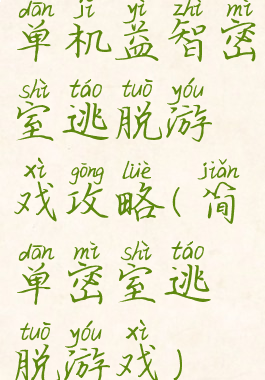 dān jī yì zhì mì
单机益智密
shì táo tuō yóu
室逃脱游
xì gōng lüè jiǎn
戏攻略(简
dān mì shì táo
单密室逃
tuō yóu xì
脱游戏)